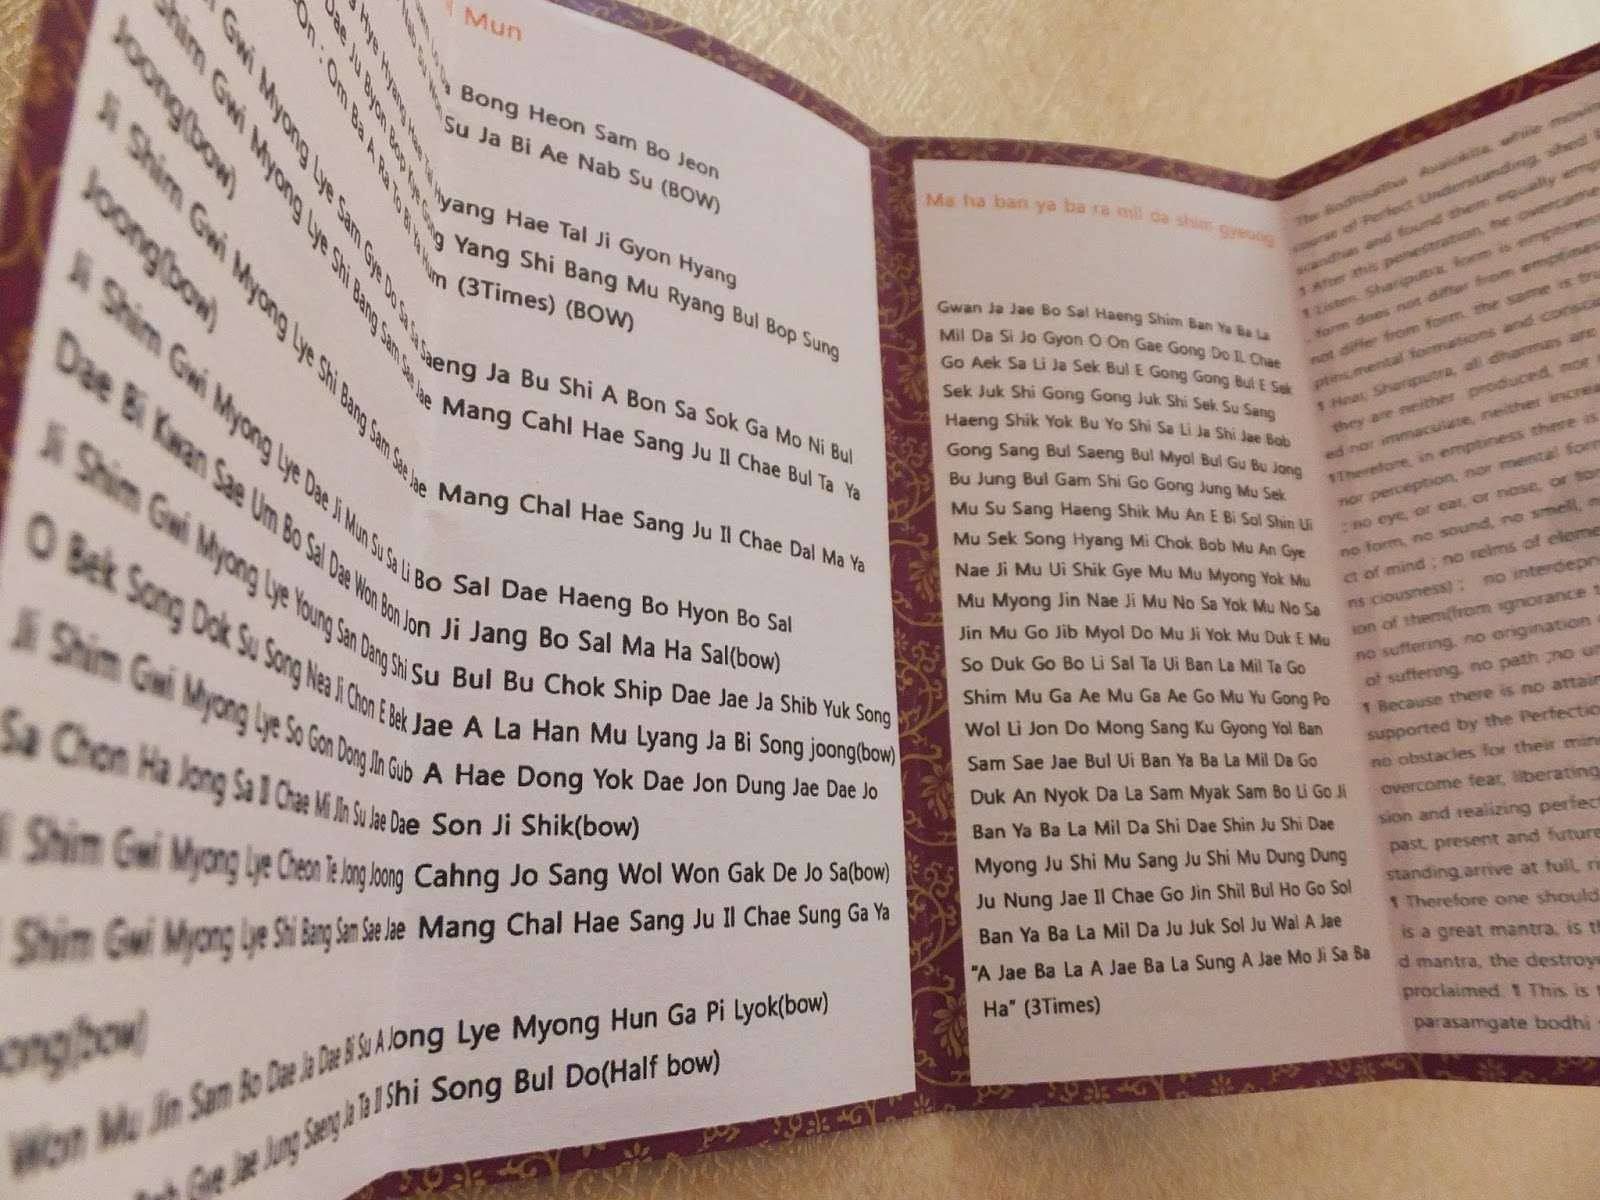 Mun
Bong Heon Sam Bo Jeon
Su Ja Bi Ae Nab Su (BOW)
Hyang Hae Tal Ji Gyon Hyang
Dae Ju Byon Bop Kye Gong Yang Shi Bang Mu Ryang Bul Bop Sung
On : Om Ba A Ra To Bi Ya Hum (3Times) (BOW)
Gwi Myong Lye Sam Gye Do Sa Sa Saeng Ja Bu Shi A Bon Sa Sok Ga Mo Ni Bul
Shim Gwi Myong Lye Shi Bang Sam Sae Jae Mang Cahl Hae Sang Ju Il Chae Bul Ta Ya
Joong(bow)
Ji Shim Gwi Myong Lye Shi Bang Sam Sae Jae Mang Chal Hae Sang Ju Il Chae Dal Ma Ya
Joong(bow)
Ji Shim Gwi Myong Lye Dae Ji Mun Su Sa Li Bo Sal Dae Haeng Bo Hyon Bo Sal
Dae Bi Kwan Sae Um Bo Sal Dae Won Bon Jon Ji Jang Bo Sal Ma Ha Sal(bow)
Ji Shim Gwi Myong Lye Young San Dang Shi Su Bul Bu Chok Ship Dae Jae Ja Shib Yuk Song
O Bek Song Dok Su Song Nea Ji Chon E Bek Jae A La Han Mu Lyang Ja Bi Song joong(bow)
Ji Shim Gwi Myong Lye So Gon Dong JIn Gub A Hae Dong Yok Dae Jon Dung Jae Dae Jo
Sa Chon Ha Jong Sa Il Chae Mi JIn Su Jae Dae Son Ji Shik(bow)
Shim Gwi Myong Lye Cheon Te Jong Joong Cahng Jo Sang Wol Won Gak De Jo Sa(bow)
Shim Gwi Myong Lye Shi Bang Sam Sae Jae Mang Chal Hae Sang Ju Il Chae Sung Ga Ya
(bow)
Won Mu Jin Sam Bo Dae Ja Dae Bi Su A Jong Lye Myong Hun Ga Pi Lyok(bow)
Gye Jae Jung Saeng Ja Ta Il Shi Song Bul Do(Half bow)
Ma ha ban ya ba ra mil da shim gyeong
Gwan Ja Jae Bo Sal Haeng Shim Ban Ya Ba La
Mil Da Si Jo Gyon O On Gae Gong Do IL Chae
Go Aek Sa Li Ja Sek Bul E Gong Gong Bul E Sek
Sek Juk Shi Gong Gong Juk Shi Sek Su Sang
Haeng Shik Yok Bu Yo Shi Sa Li Ja Shi Jae Bob
Gong Sang Bul Saeng Bul Myol Bul Gu Bu Jong
Bu Jung Bul Gam Shi Go Gong Jung Mu Sek
Mu Su Sang Haeng Shik Mu An E Bi Sol Shin Ui
Mu Sek Song Hyang Mi Chok Bob Mu An Gye
Nae Ji Mu Ui Shik Gye Mu Mu Myong Yok Mu
Mu Myong Jin Nae Ji Mu No Sa Yok Mu No Sa
Jin Mu Go Jib Myol Do Mu Ji Yok Mu Duk E Mu
So Duk Go Bo Li Sal Ta Ui Ban La Mil Ta Go
Shim Mu Ga Ae Mu Ga Ae Go Mu Yu Gong Po
Wol Li Jon Do Mong Sang Ku Gyong Yol Ban
Sam Sae Jae Bul Ui Ban Ya Ba La Mil Da Go
Duk An Nyok Da La Sam Myak Sam Bo Li Go Ji
Ban Ya Ba La Mil Da Shi Dae Shin Ju Shi Dae
Myong Ju Shi Mu Sang Ju Shi Mu Dung Dung
Ju Nung Jae Il Chae Go Jin Shil Bul Ho Go Sol
Ban Ya Ba La Mil Da Ju Juk Sol Ju Wal A Jae
"A Jae Ba La A Jae Ba La Sung A Jae Mo Ji Sa Ba
Ha" (3Times)
The Bodhisattva while moving
course of Perfect Understanding, shed
scandhas and found them equally
¶ After this penestration, he overcame
¶ Listen Shariputra, form is emptiness
form does not differ from emptiness
not differ from form. the same is
mental formations and
¶ Hear, Shariputra, all dharmas are
they are neither produced, nor
ed nor immaculate, neither
¶Therefore, in emptiness there is
nor perception, nor mental
; no eye, or ear, or nose, or
no form, no sound, no smell,
ct of mind ; no relms of
ns ciousness) ; no
ion of them(from ignorance
no suffering, no origination
of suffering, no path ;no
¶ Because there is no
supported by the
no obstacles for their
overcome fear, liberating
sion and realizing
past, present and future
standing,arrive at full,
¶ Therefore one should
is a great mantra, is
d mantra, the
proclaimed. ¶ This is
parasamgate bodhi